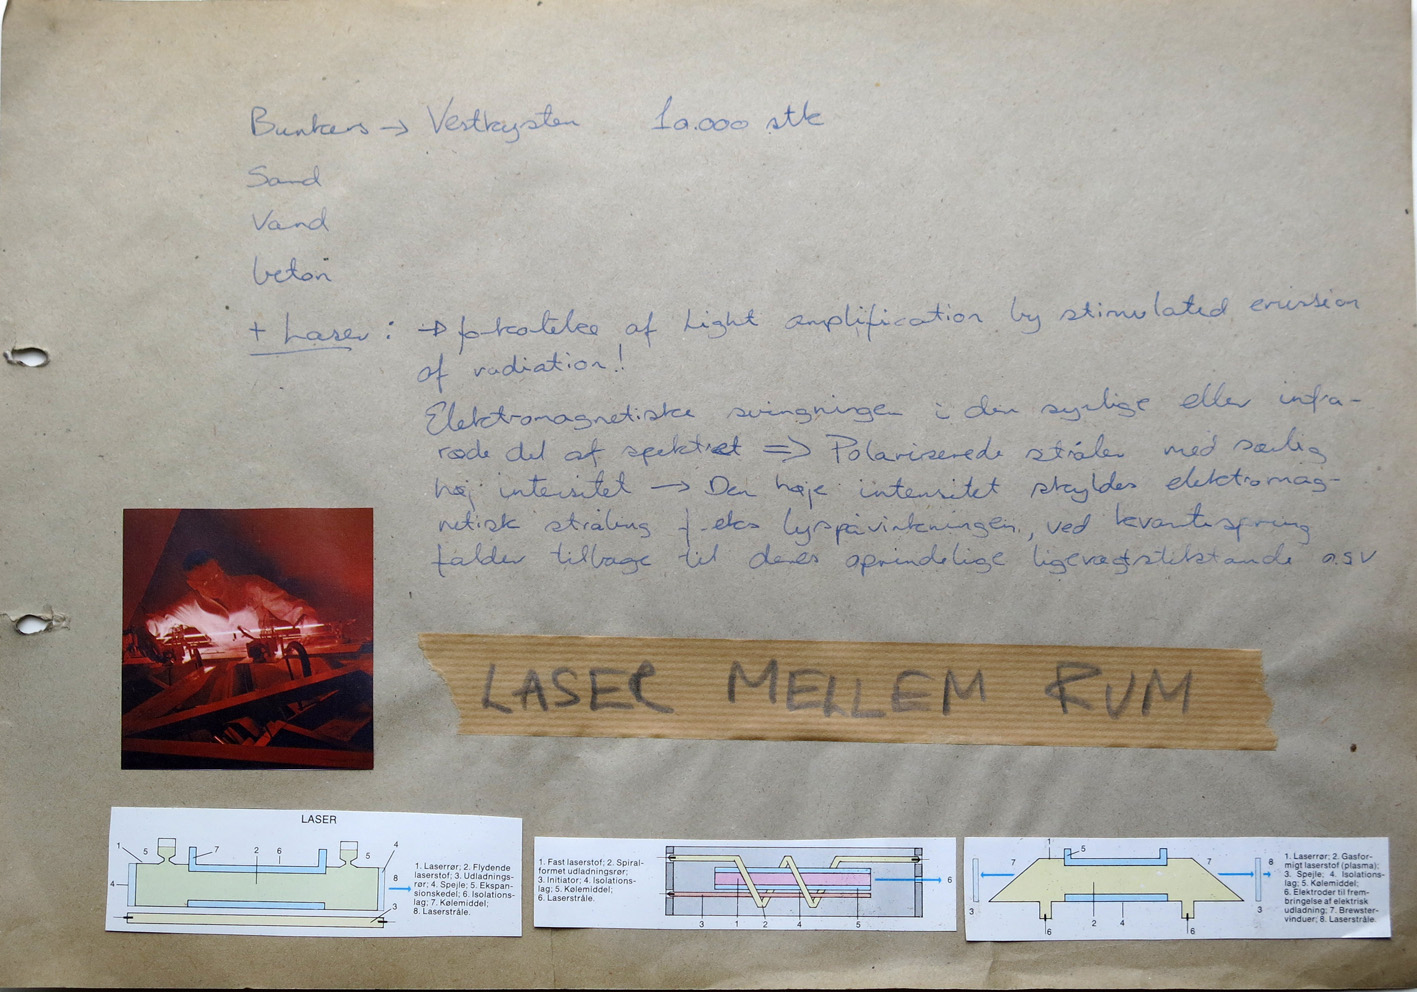 Bunkers → Vestkysten 10.000 stk
Sand
Vand
beton
+ Laser : → forkortelse af Light amplification by stimulated emission
of radiation!
Elektromagnetiske svingninger i den synlige eller infra-
røde del af spektret => Polariserede stråler med særlig
høj intensitet → Den høje intensitet skyldes elektromag-
netisk stråling f.eks lyspåvirkningen, ved kvantespring
falder tilbage til deres oprindelige ligevægtstilstande osv
LASER MELLEM RUM
LASER
1 5 7 2 6 5 4
4 8 3
1. Laserrør; 2. Flydende
laserstof; 3. Udladnings-
rør; 4. Spejle; 5. Ekspan-
sionskedel; 6. Isolations-
lag; 7. Kølemiddel;
8. Laserstråle.
1. Fast laserstof; 2. Spiral-
formet udladningsrør;
3. Initiator; 4. Isolations-
lag; 5. Kølemiddel;
6. Laserstråle.
6
3 1 2 4 5
1 5
7 7 8
3 3
6 2 4 6
1. Laserrør; 2. Gasfor-
migt laserstof (plasma);
3. Spejle; 4. Isolations-
lag; 5. Kølemiddel;
6. Elektroder til frem-
bringelse af elektrisk
udladning; 7. Brewster-
vinduer; 8. Laserstråle.